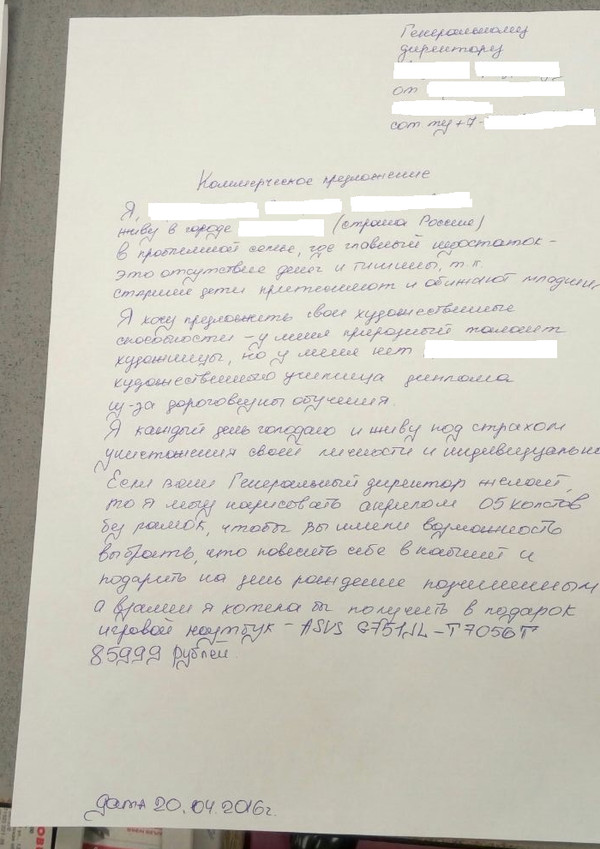 Генеральному
директору
от
сот. тел +7-
Коммерческое предложение
Я,
живу в городе (страна Россия)
в проблемной семье, где главный недостаток -
это отсутствие денег и тишины, т.к.
старшие дети притесняют и обижают младших,
Я хочу предложить свои художественные
способности - у меня природный талант
художницы, но у меня нет
художественного училища диплома
из-за дороговизны обучения.
Я каждый день голодаю и живу под страхом
уничтожения своей личности и индивидуально
Если ваш Генеральный директор желает,
то я могу нарисовать акрилом 05 холстов
без рамок, чтобы вы имели возможность
выбрать, что повесить себе в кабинет и
подарить на день рождение подчиненным
а взамен я хотела бы получить в подарок
игровой ноутбук - ASUS G751JL-T7056T
85999 рублей.
дата 20.04.2016г.